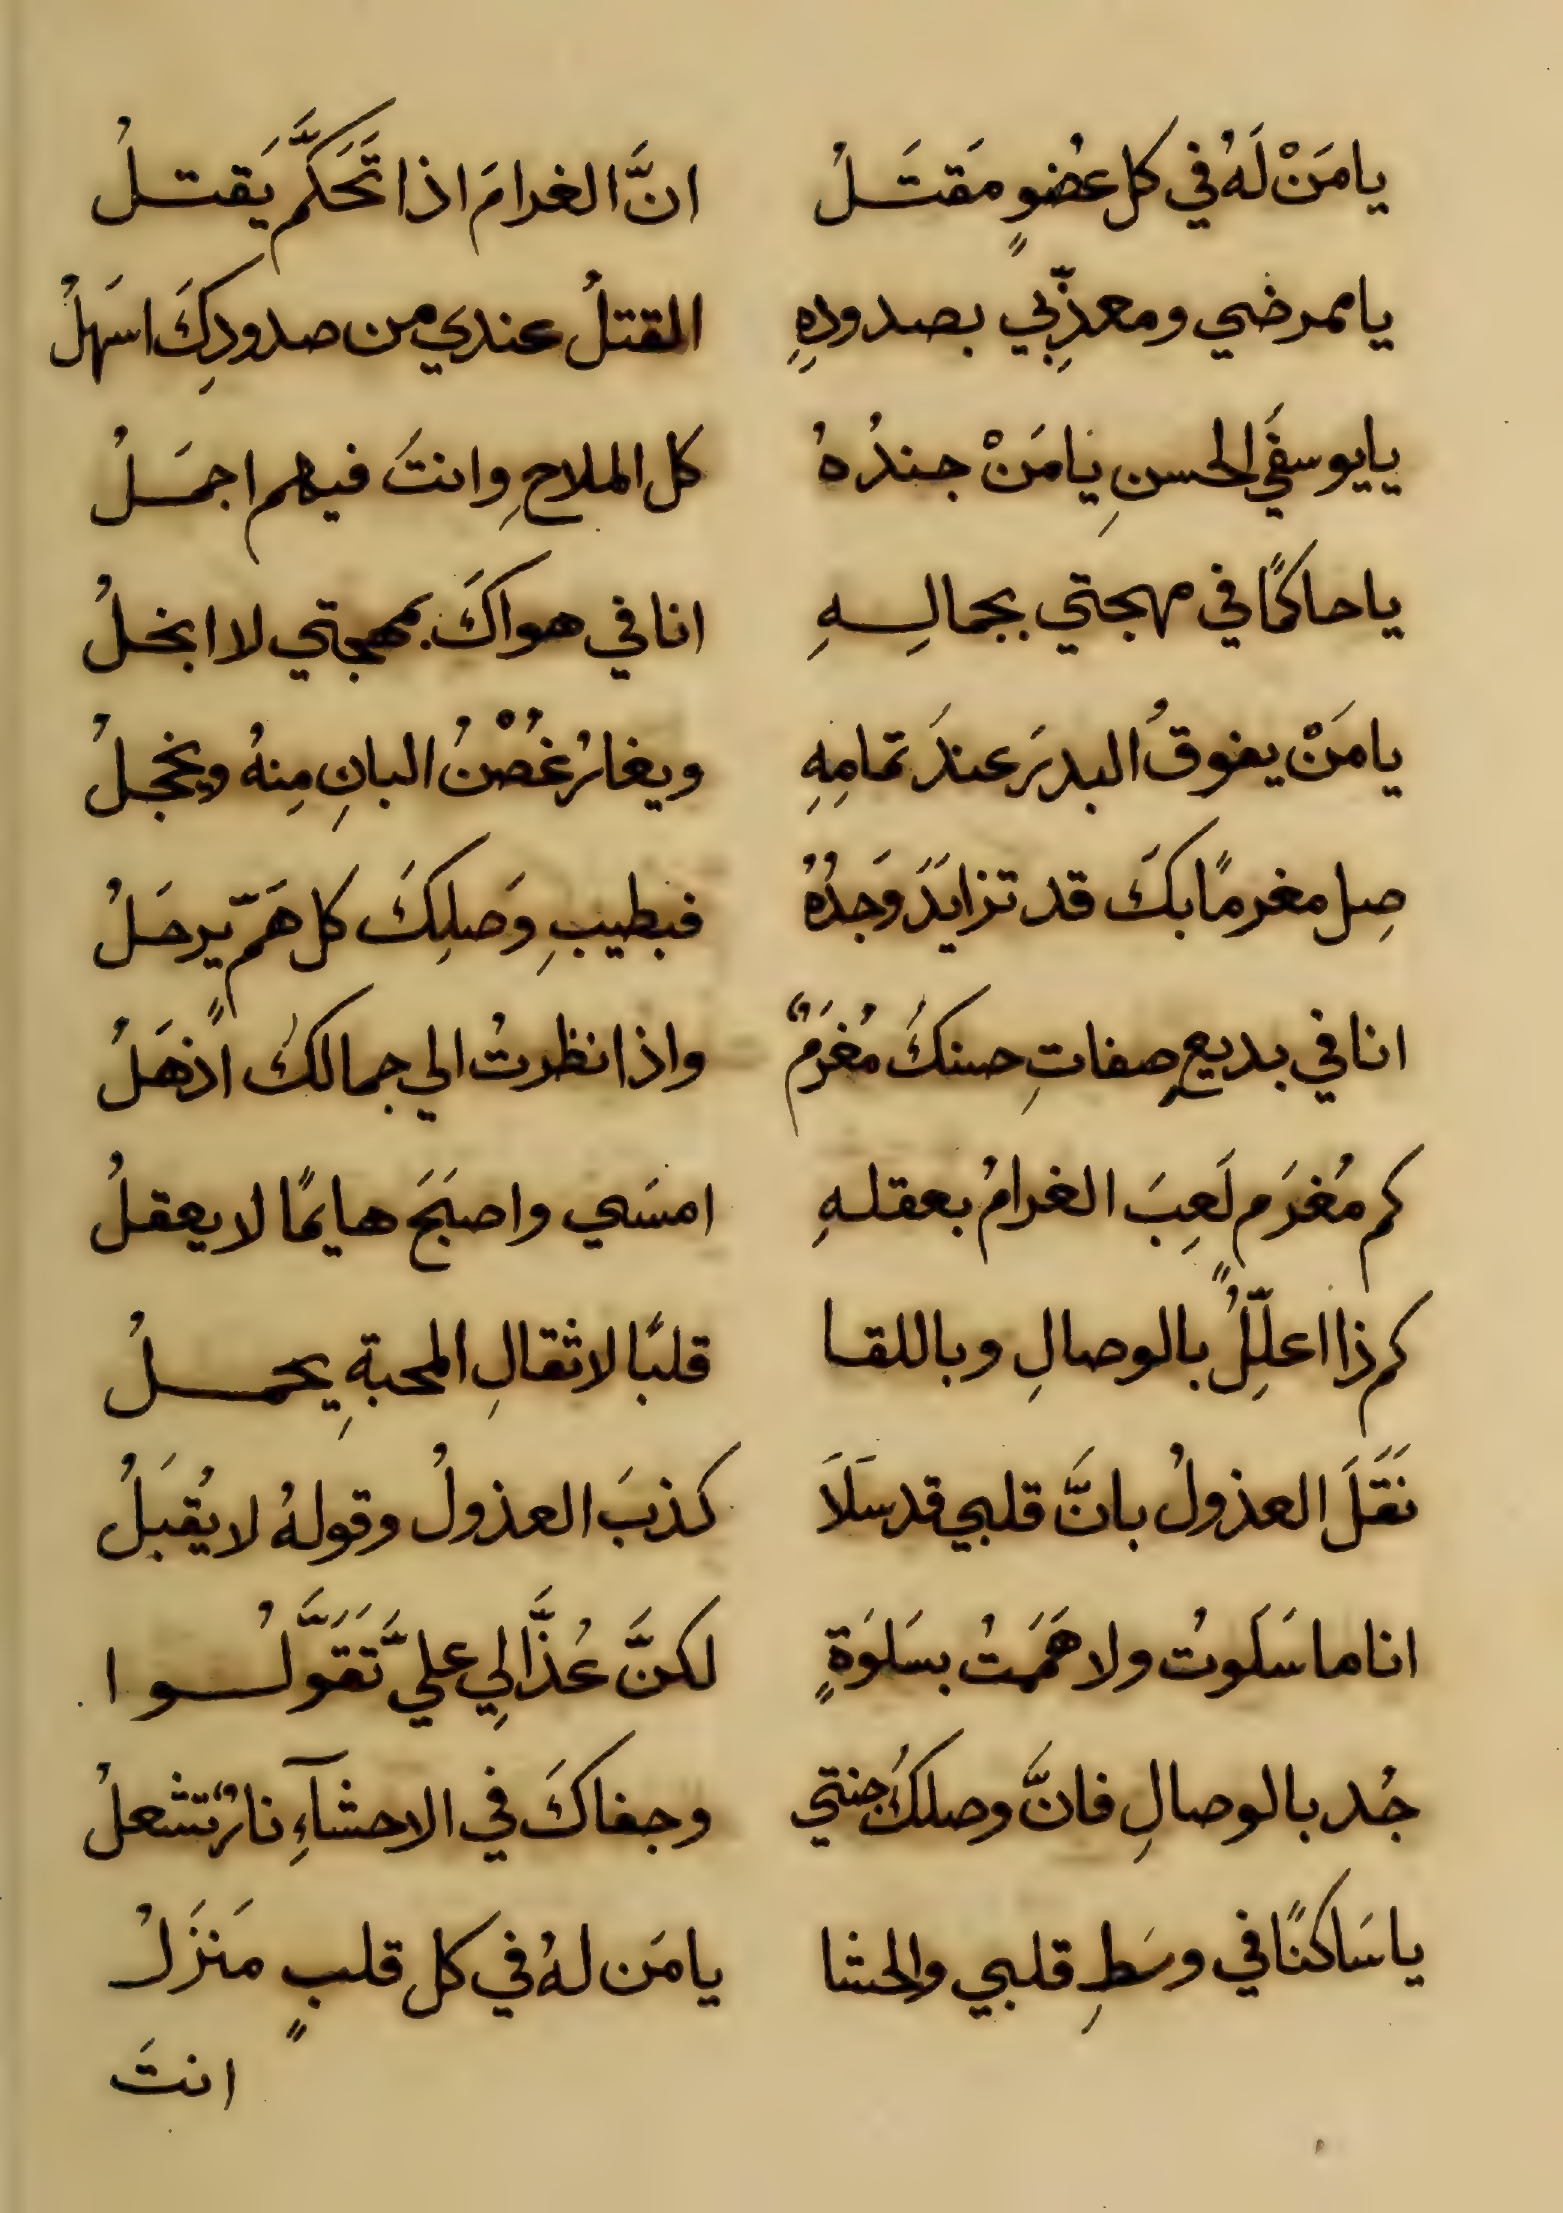 يا مَنْ لَهُ في كل عضُوٍ مَقتَلُ انَّ الغرامَ اذا تَحَكَّم يَقتلُ
يا ممرضي ومعذِّبي بصدودِهِ القتلُ عندي من صدودِكَ اسهَلُ
يا يوسفَي الحسنِ يَا مَنْ جندُهُ كل الملاحِ وانتَ فيهم اجمَلُ
يا حاكمًا في مهجتي بجمالِهِ انا في هواكَ بمهجتي لا ابخلُ
يا مَنْ يفوقُ البدرَ عندَ تمامِهِ ويغارُ غُصْنُ البانِ مِنهُ ويخجلُ
صِل مغرمًا بكَ قد تزايَدَ وَجدُهُ فبطيبِ وَصلِكَ كل هَمٍّ يرحَلُ
انا في بديعِ صفاتِ حسنكَ مُغرَمٌ واذا نظرتُ الي جمالكَ اذهَلُ
كم مُغرَمٍ لَعِبَ الغرامُ بعقلهِ امسَي واصبَحَ هايمًا لا يعقلُ
كم ذا اعلِّلُ بالوصالِ وباللقا قلبًا لاثقالِ المحبةِ يحملُ
نَقَلَ العذولُ بانَّ قلبي قد سَلَا كذبَ العذولُ وقولهُ لا يُقبَلُ
انا ما سَلَوتُ ولا هَمَمتُ بسَلوَةٍ لكنَّ عُذَّالِي عليَّ تَقَوَّلُوا
جُد بالوصالِ فانَّ وصلكَ جنتي وجفاكَ في الاحشآءِ نارٌ تشعلُ
يا سَاكنًا في وسَطِ قلبي والحشا يا مَن لهُ في كل قلبٍ مَنزَلُ
انتَ